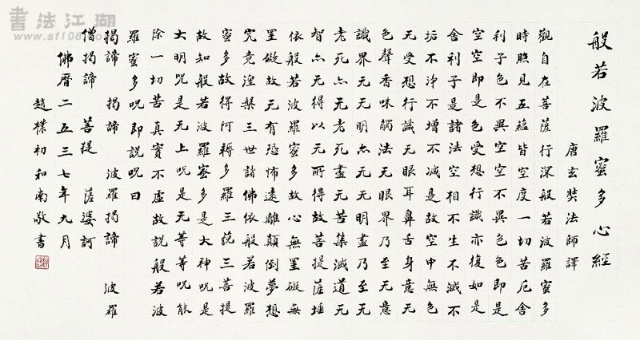 书法江湖
般若波羅蜜多心經
唐玄奘法師譯
觀自在菩薩行深般若波羅蜜多
時照見五蘊皆空度一切苦厄舍
利子色不異空空不異色色即是
空空即是色受想行識亦復如是
舍利子是諸法空相不生不滅不
垢不淨不增不減是故空中無色
无受想行識无眼耳鼻舌身意无
色聲香味觸法无眼界乃至无意
識界无无明亦无无明盡乃至无
老死亦无老死盡无苦集滅道无
智亦无得以无所得故菩提薩埵
依般若波羅蜜多故心無罣礙無
罣礙故无有恐怖遠離顛倒夢想
究竟涅槃三世諸佛依般若波羅
蜜多故得阿耨多羅三藐三菩提
故知般若波羅蜜多是大神呪是
大明呪是无上呪是无等等呪能
除一切苦真實不虛故說般若波
羅蜜多呪即說呪曰
揭諦 揭諦 波羅揭諦 波羅
僧揭諦 菩提 薩婆訶
佛曆二五三七年九月
趙樸初和南敬書